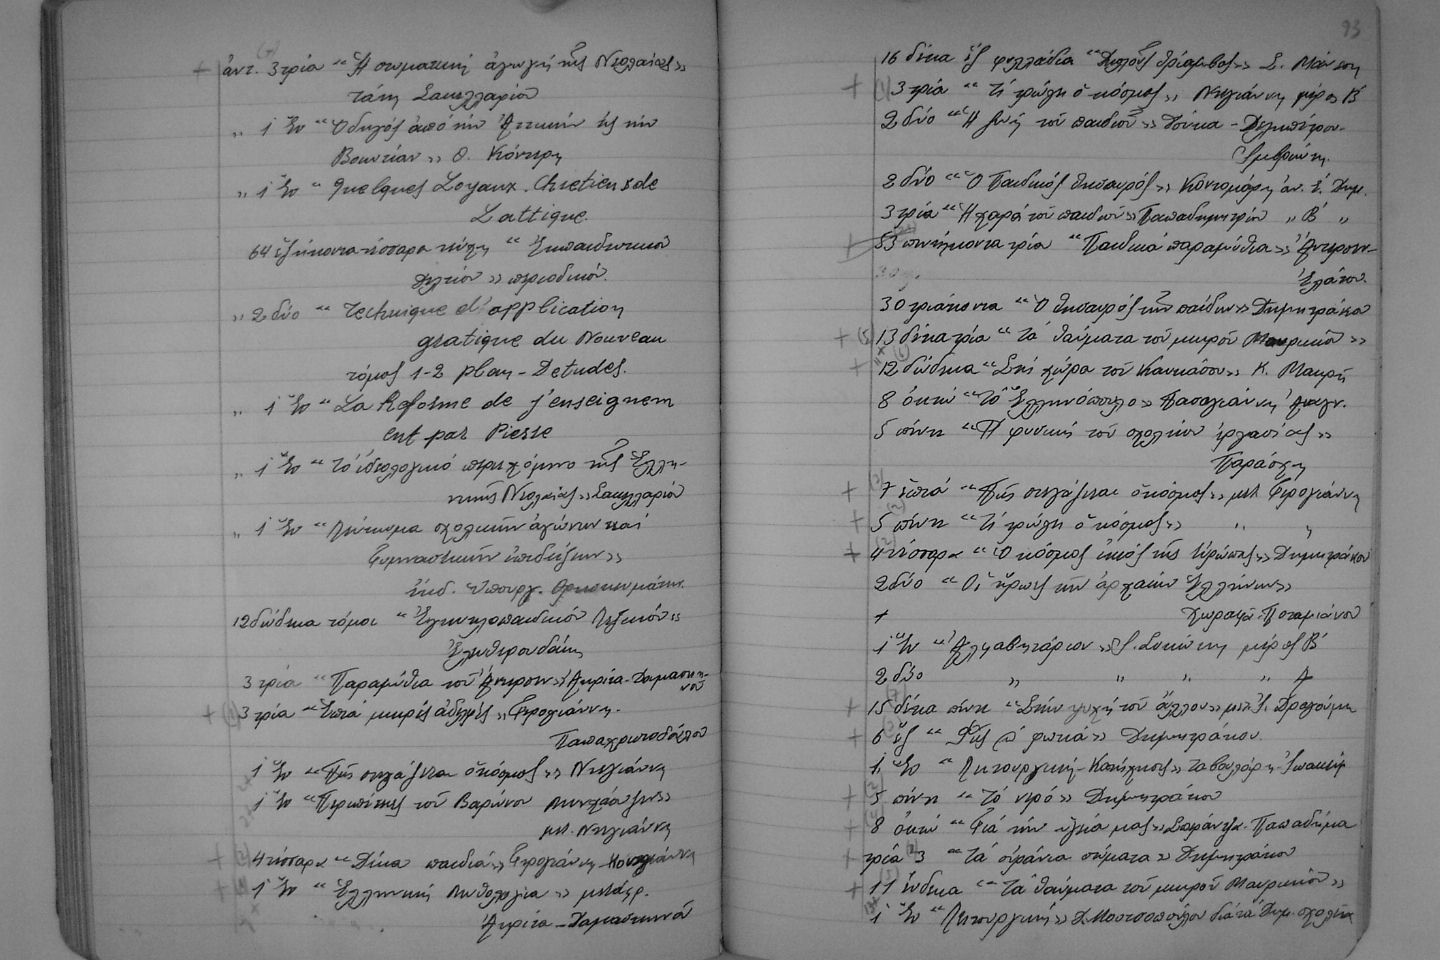 ἀντ. 3 τρία “Ἡ σωματική ἀγωγή τῆς Νεολαίας»
Σακελλαρίου
„ 1 ἕν “Ὁδηγός ἀπό τήν Ἀττικήν εἰς τήν
Βοιωτίαν» Θ.
„ 1 ἕν “Quelques Loyaux Chretiens de
Lattique.
64 ἑξήκοντα τέσσαρα τεύχη “Ἐκπαιδευτικόν
Δελτίον» περιοδικόν.
„ 2 δύο “Technique d'application
gratique du Nouveau
τόμος 1-2 plan - Detudes.
„ 1 ἕν “La Reforme de j'enseignem
ent par Pierre
„ 1 ἕν “Τό ἰδεολογικό περιεχόμενο τῆς Ἑλλη-
νικῆς Νεολαίας» Σακελλαρίου
„ 1 ἕν “Λεύκωμα σχολικῶν ἀγώνων καί
Γυμναστικῶν ἐπιδείξεων»
ἐκδ. Ὑπουργ. Θρησκευμάτων.
12 δώδεκα τόμοι “Ἐγκυκλοπαιδικόν Λεξικόν»
Ἐλευθερουδάκη
3 τρία “Παραμύθια τοῦ Ἄντερσεν» Ἀκρίτα - Δαμασκη-
νοῦ
+ 3 τρία “Ἑπτά μικρές ἀδελφές» Γερογιάννη.
Παπαχριστοδούλου
1 ἕν “Πῶς στολίζεται ὁ κόσμος» Ντελιάννη
1 ἕν “Περιπέτειες τοῦ Βαρώνου Μυνχάουζεν»
μετ. Ντελιάννη
+ 4 τέσσαρα “Δέκα παιδιά» Γερογιάννη
+ 1 ἕν “Ἑλληνική Μυθολογία» μετάφρ.
Ἀκρίτα - Δαμασκηνοῦ
93
16 δέκα ἕξ φυλλάδια “Διπλοῦς θρίαμβος» Σ.
+ 3 τρία “Τί τρώγει ὁ κόσμος» Ντελιάννη μέρος Β΄
2 δύο “Ἡ ζωή τοῦ παιδιοῦ» Δούκα - Δεληπέτρου-
2 δύο “Ὁ Παιδικός θησαυρός» Κοντομάρη ἀν. Ε΄. Δημ.
3 τρία “Ἡ χαρά τοῦ παιδιοῦ» Παπαδημητρίου „ Β΄ „
+ 53 πενήκοντα τρία “Παιδικά παραμύθια» Ἄντερσεν-
Ἐλάτου.
30 τριάκοντα “Ὁ θησαυρός τῶν παίδων» Δημητράκου
+ 13 δέκα τρία “Τά θαύματα τοῦ μικροῦ Μαυρικίου»
+ 12 δώδεκα “Στή χώρα τοῦ Καυκάσου» Κ. Μακρῆ
8 ὀκτώ “Τό Ἑλληνόπουλο» Πασαγιάννη
5 πέντε “Ἡ φυσική τοῦ σχολείου ἐργασίας»
Παράσχη
+ 7 ἑπτά “Πῶς στολίζεται ὁ κόσμος» μετ. Γερογιάννη
+ 5 πέντε “Τί τρώγει ὁ κόσμος» „ „
+ 4 τέσσαρα “Ὁ κόσμος ἐκτός τῆς Εὐρώπης» Δημητράκου
2 δύο “Οἱ ἥρωες τῶν ἀρχαίων Ἑλλήνων»
+ Χωραφᾶ - Ποταμιάνου
1 ἕν “Ἀλφαβητάριον» μέρος Β΄
2 δύο „ „ „ „ Α
+ 15 δέκα πέντε “Στήν ψυχή τοῦ ἄλλου» μετ. Ἰ. Δραγούμη
+ 6 ἕξ “Φῶς Δημητράκου
1 ἕν “Λειτουργική - Κατήχησις» Ταβουλάρη - Ἰωακείμ
+ 5 πέντε “Τό νερό» Δημητράκου
+ 8 ὀκτώ “Γιά τήν ὑγεία μας» Σαράντη - Παπαδήμα
+ τρία 3 “Τά οὐράνια σώματα» Δημητράκου
+ 11 ἕνδεκα “Τά θαύματα τοῦ μικροῦ Μαυρικίου»
1 ἕν “Λειτουργική» Δ. Μουτσοπούλου διά τά Δημ. σχολεῖα